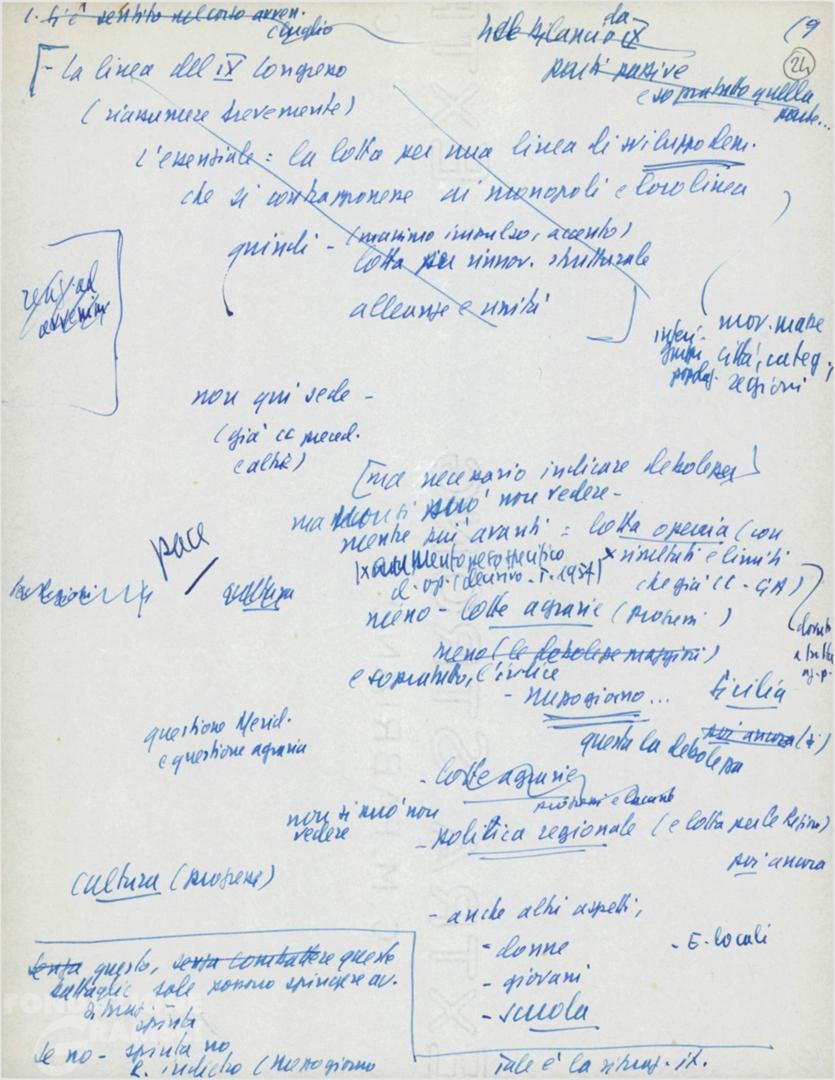 1. Si è sentito nel corso avven.
luglio
nel bilancio da IX
parti passive
e soprattutto quella
parte...
19
24
[- La linea del IX Congresso
(riassumere brevemente)
L'essenziale = la lotta per una linea di sviluppo dem.
che si contrappone ai monopoli e loro linea
quindi - (massimo impulso, accento)
lotta per rinnov. strutturale
alleanze e unità
mov. masse
città, categ.,
regioni
non qui sede -
(già CC preced.
e altri)
[ma necessario indicare debolezze]
ma non si può non vedere -
mentre più avanti = lotta operaia (con
x risultati e limiti
che già CC - GA)
pace
cultura
meno - lotte agrarie (progressi)
meno (le debolezze maggiori)
e soprattutto, l'indice
- Mezzogiorno... Sicilia
questa la debolezza
più ancora (si)
questione Merid.
e questione agraria
- lotte agrarie
progressi e lacune
non si può non
vedere
- politica regionale (e lotta per le Regioni)
più ancora
cultura (progresso)
- anche altri aspetti,
- donne
- E. locali
- giovani
- scuola
senza questo, senza combattere queste
battaglie, sole possono spingere av.
situaz.
spinta
se no - spinta no
e. indietro (Mezzogiorno
Tale è la situaz. it.